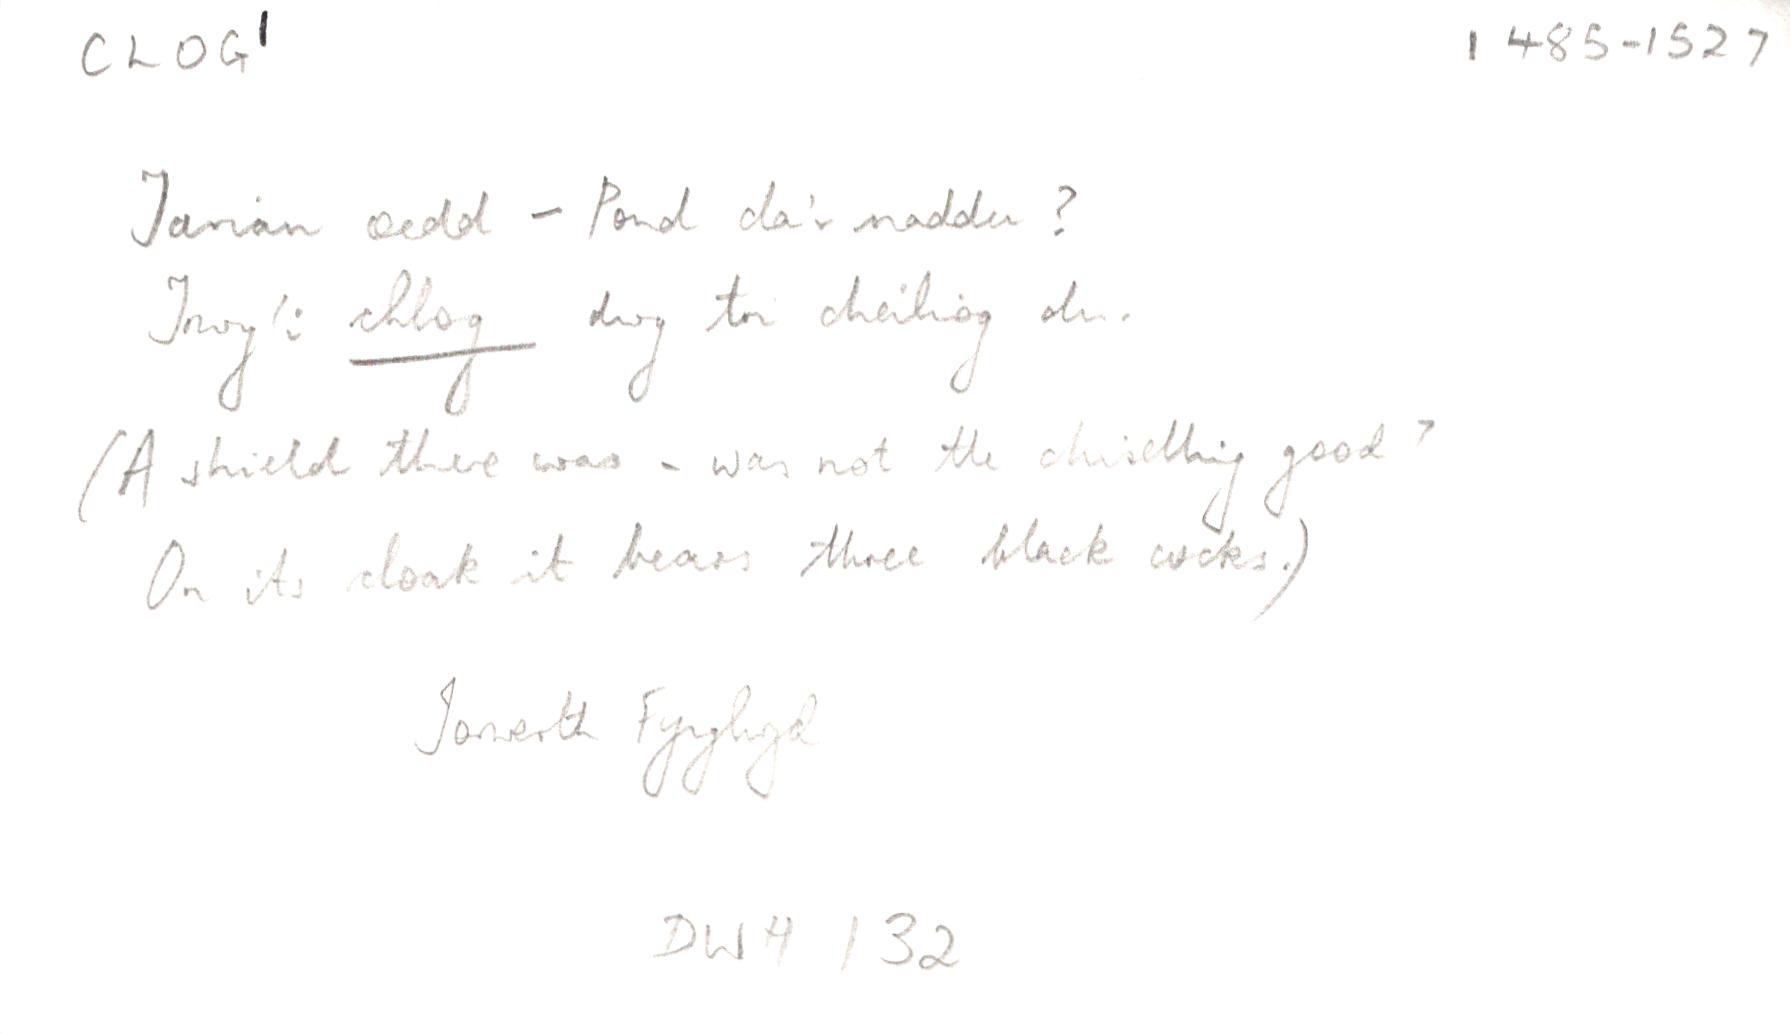 CLOG¹ 1485-1527
Tarian oedd - Pond da'r naddu?
Trwy'i chlog dwg tri cheiliog du.
(A shield there was - was not the chiselling good?
On its cloak it bears three black cocks.)
Iorwerth Fynglwyd
DWH 132